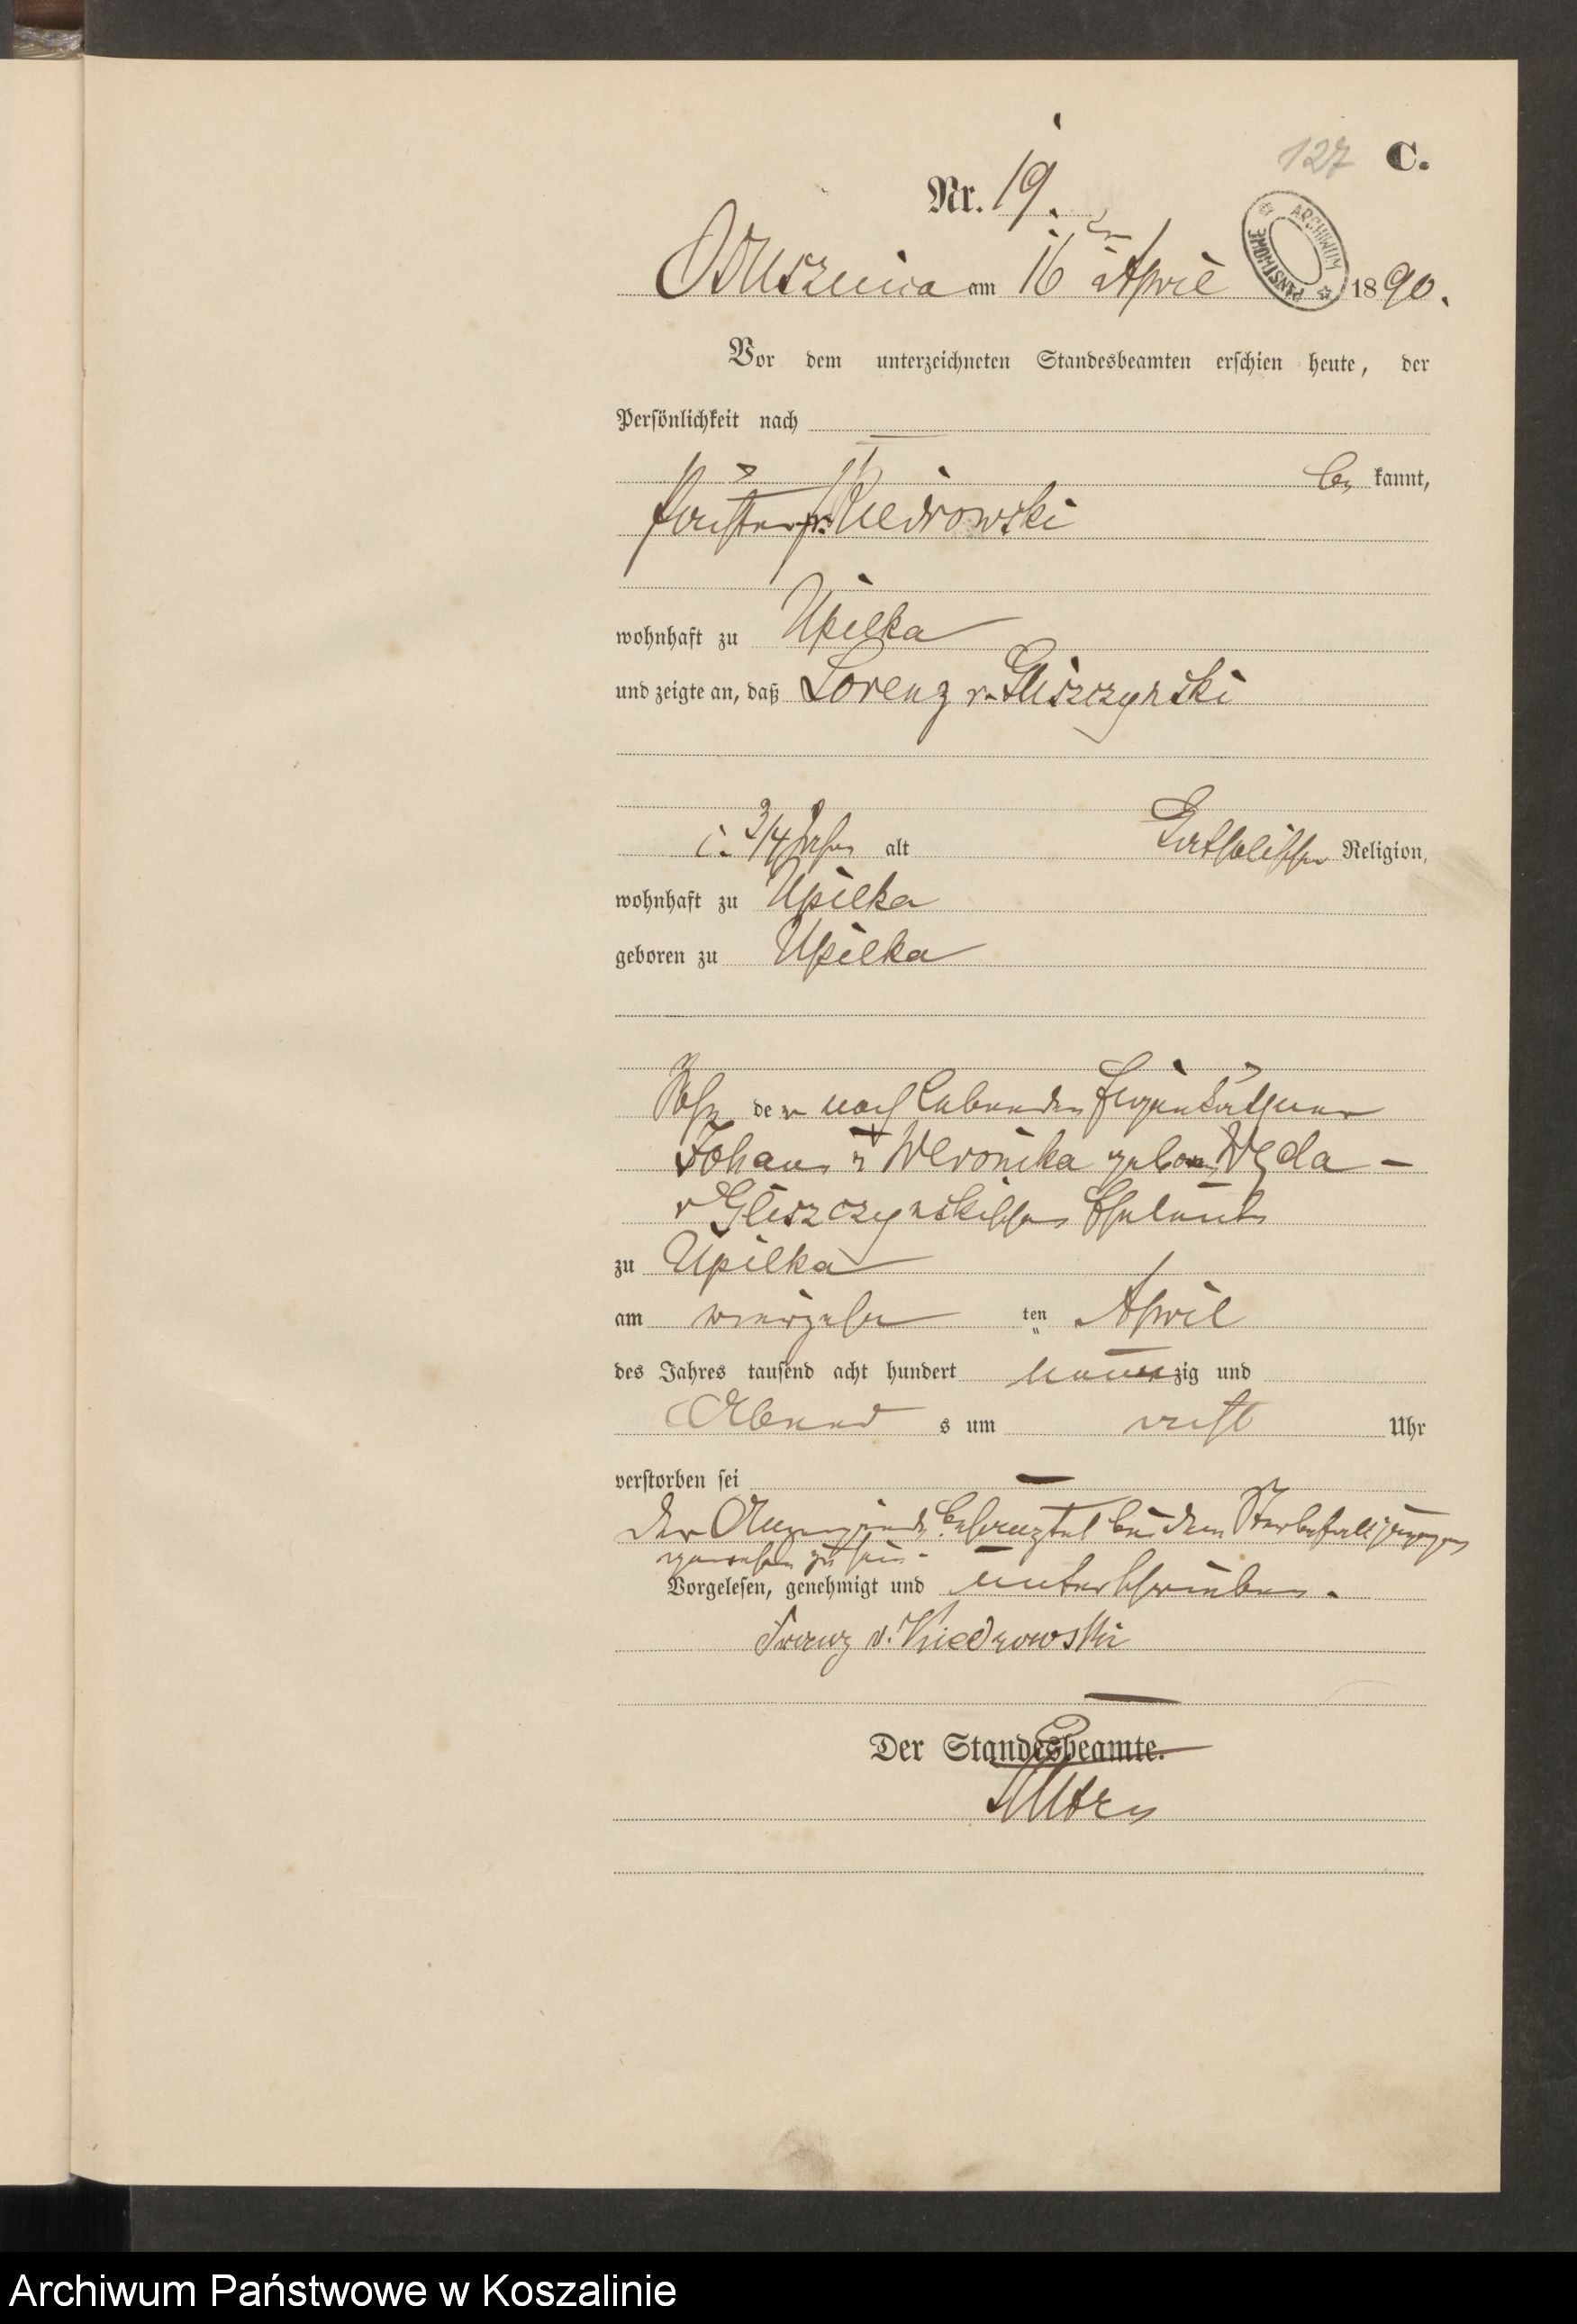 127 C.
Nr. 19.
ARCHIWUM PAŃSTWOWE
am 16ten April 1890.
Vor dem unterzeichneten Standesbeamten erschien heute, der
Persönlichkeit nach
be kannt,
v. Kiedrowski
wohnhaft zu Upilka
und zeigte an, daß Lorenz v. Gliszczynski
3/4 Jahr alt katholischer Religion,
wohnhaft zu Upilka
geboren zu Upilka
Sohn der noch lebenden Eigenkäthner
Johann u Weronika gebor.
v Gliszczynskischen Eheleute
zu Upilka
am vierzehn ten April
des Jahres tausend acht hundert neunzig und
Abend s um Uhr
verstorben sei
Der Anzeigende bei dem Sterbefall zugegen
gewesen zu sein.
Vorgelesen, genehmigt und unterschrieben.
Franz v. Kiedrowski
Der Standesbeamte.
Archiwum Państwowe w Koszalinie